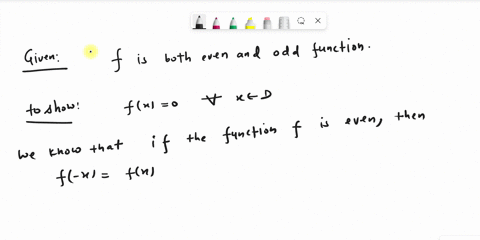 Given: f is both even and odd function.
to show: f(x) = 0 ∀ x ∈ D
We know that if the function f is even, then
f(-x) = f(x)